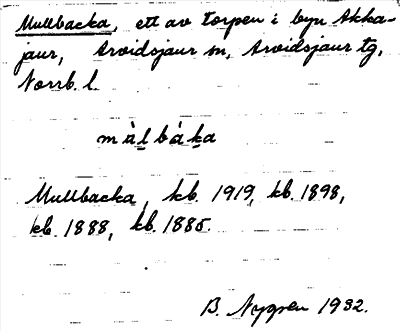 Mullbacka, ett av torpen i byn Akka-
jaur, Arvidsjaur sn, Arvidsjaur tg,
Norrb. l.
mὰlbàka
Mullbacka, kb. 1919, kb. 1898,
kb. 1888, kb. 1885.
B. Nygren 1932.